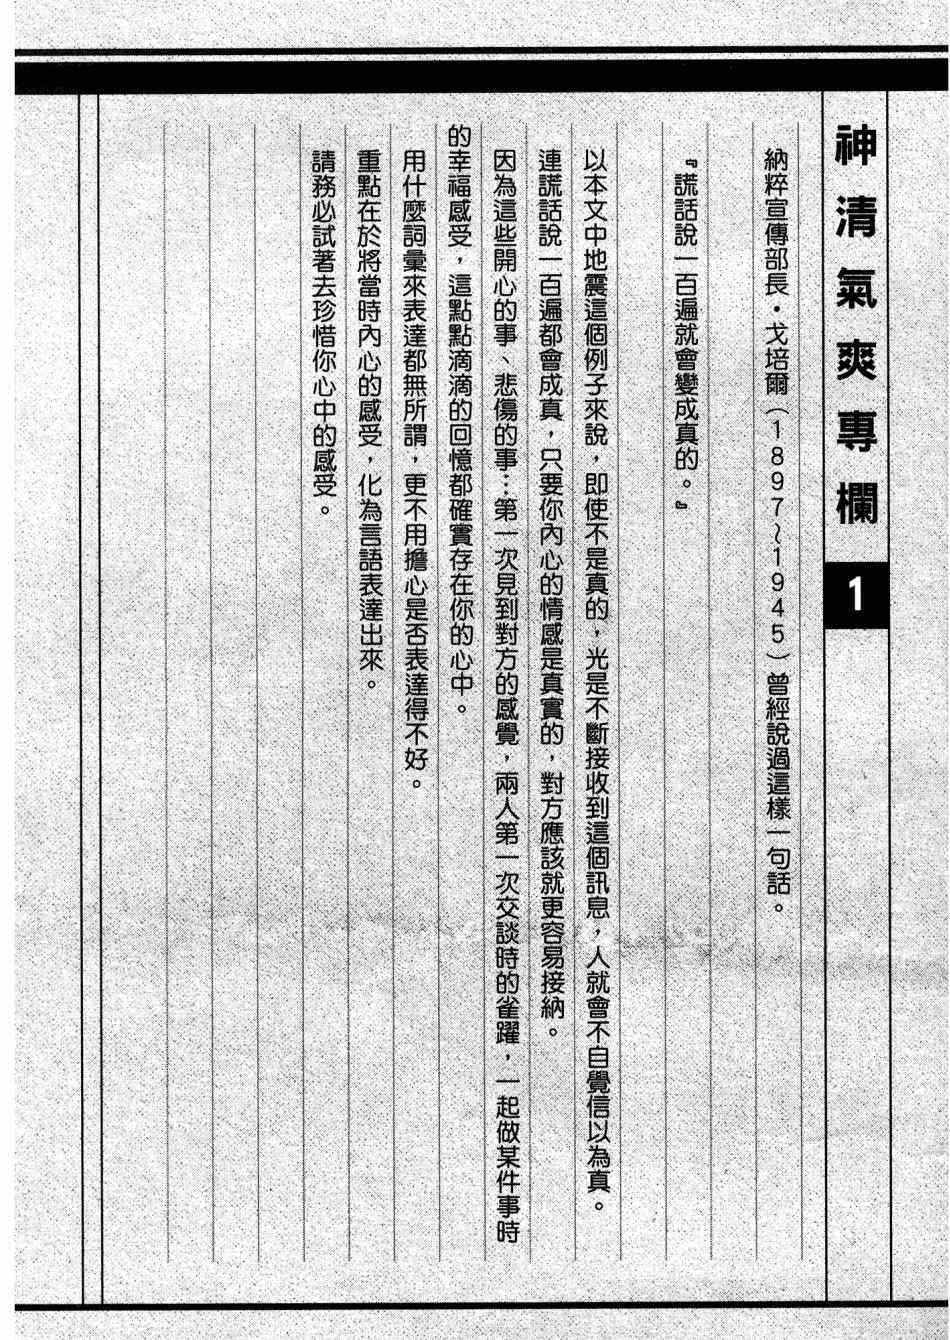 神清氣爽專欄 1
納粹宣傳部長・戈培爾（1897～1945）曾經說過這樣一句話。
『謊話說一百遍就會變成真的。』
以本文中地震這個例子來說，即使不是真的，光是不斷接收到這個訊息，人就會不自覺信以為真。
連謊話說一百遍都會成真，只要你內心的情感是真實的，對方應該就更容易接納。
因為這些開心的事、悲傷的事…第一次見到對方的感覺，兩人第一次交談時的雀躍，一起做某件事時
的幸福感受，這點點滴滴的回憶都確實存在你的心中。
用什麼詞彙來表達都無所謂，更不用擔心是否表達得不好。
重點在於將當時內心的感受，化為言語表達出來。
請務必試著去珍惜你心中的感受。